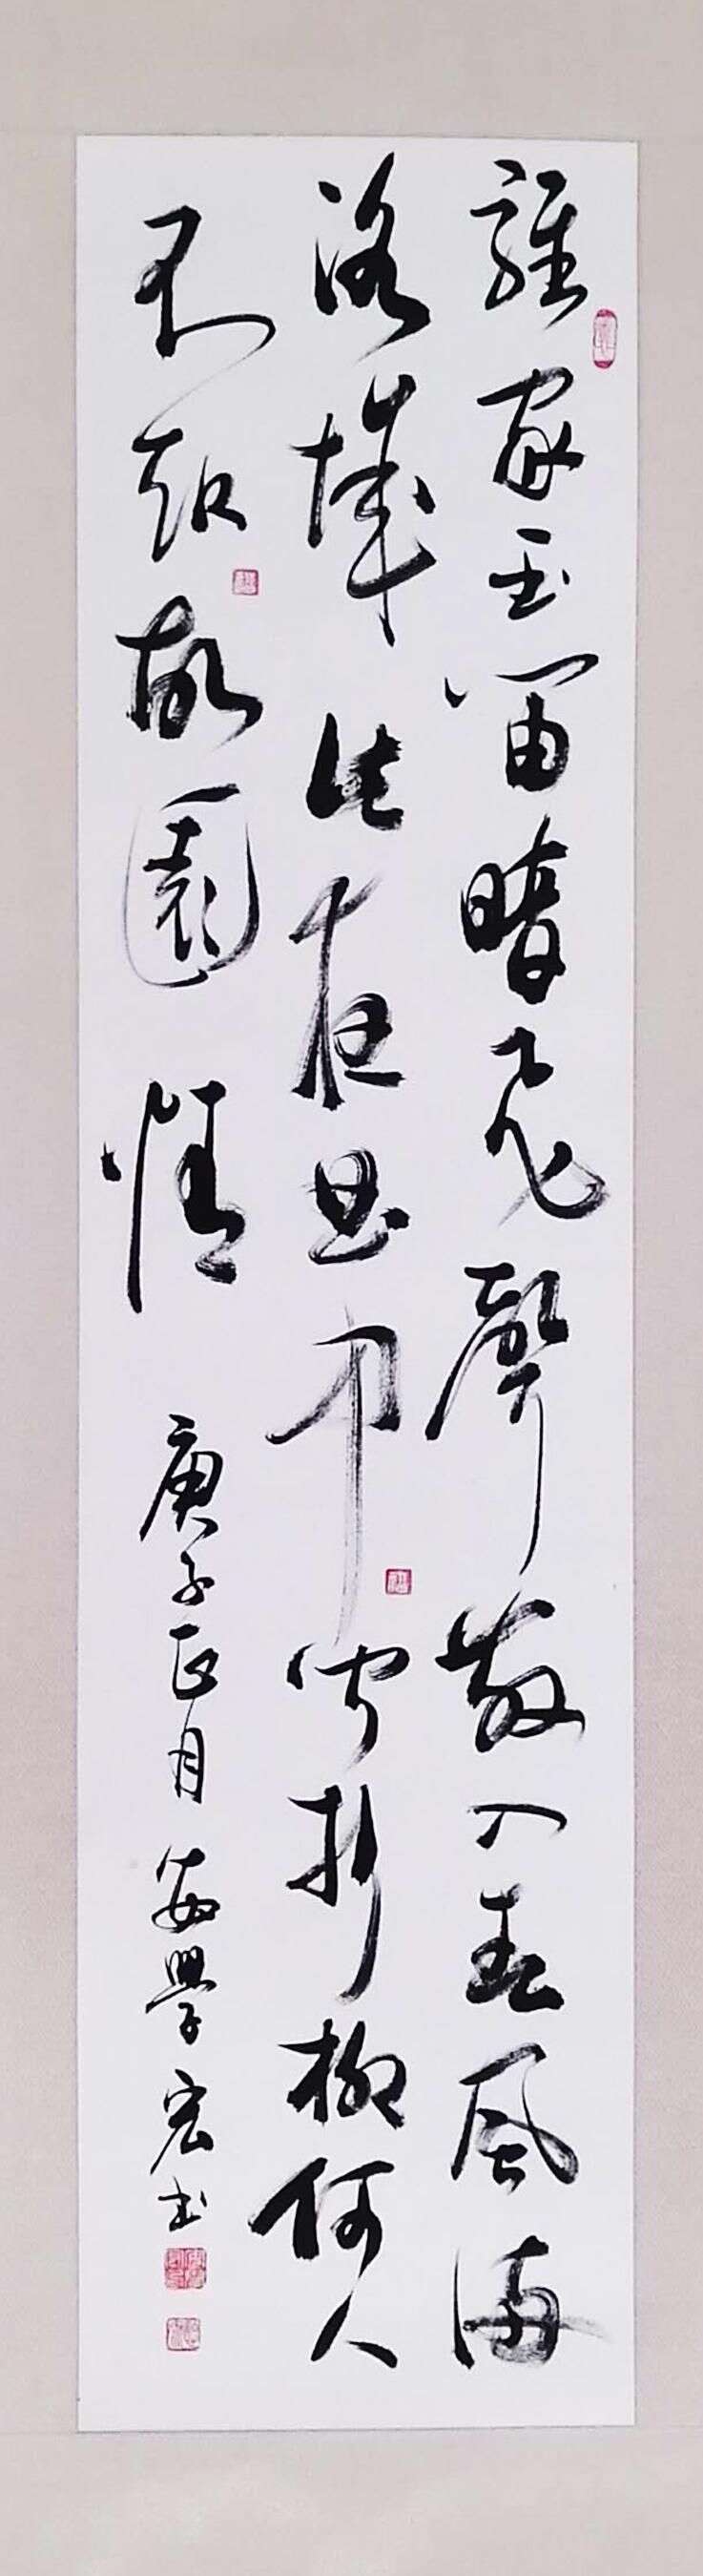 誰家玉笛暗飛聲散入春風滿
洛城此夜曲中聞折柳何人
不起故園情 庚子正月 安學宏書